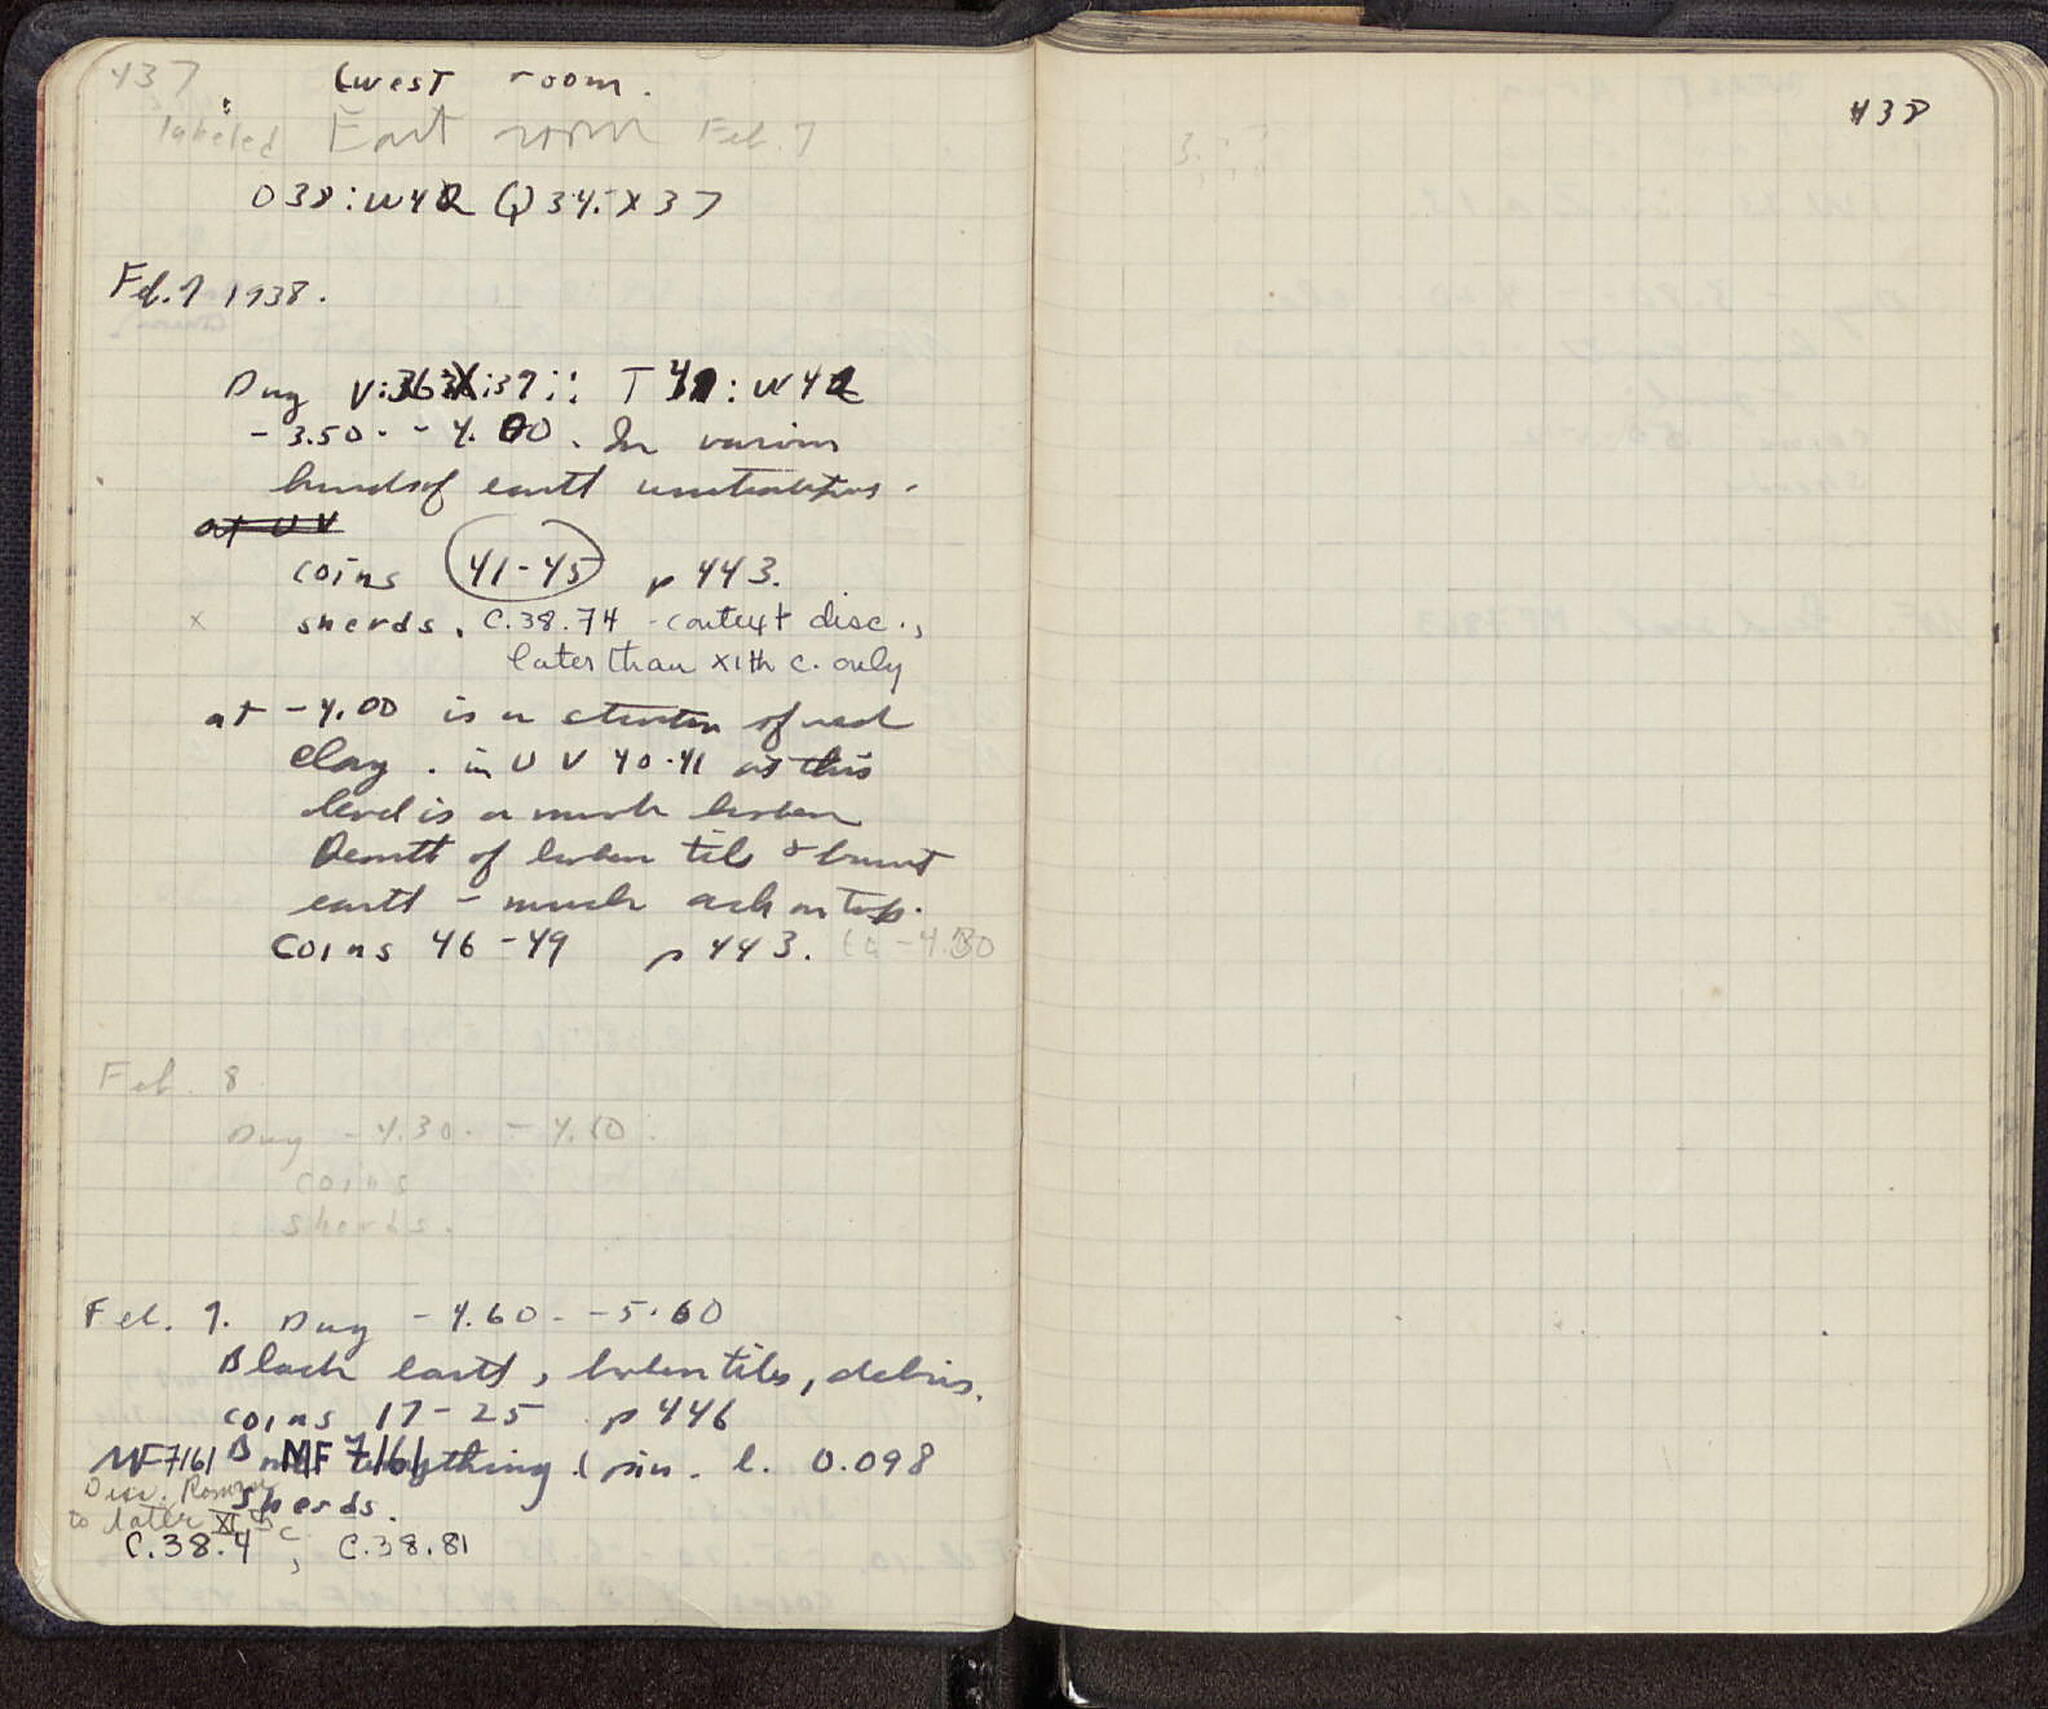 437
west room.
labeled East room Feb. 7
O 38 : W 42 Q 34. X 37
Feb. 7 1938.
Dug V: : 37 : T : W 42
- 3.50 - - 4.00. In various
kinds of earth
at U V
coins 41-45 p 443.
x sherds. C.38.74 - context disc.,
later than XIth c. only
at -4.00 is a stratum of red
clay. in U V 40-41 at this
level is a much broken
of broken tile & burnt
earth - much ash on top.
Coins 46-49 p 443. to -4.30
Feb. 8
Dug -4.30. - 4.60.
coins
sherds.
Feb. 9. Dug -4.60 - -5.60
Black earth, broken tiles, debris.
coins 17-25 p 446
MF7161 MF 7161 thing (pin. l. 0.098
Disc. Roman sherds.
to later XI th c.
C.38.4, C.38.81
438